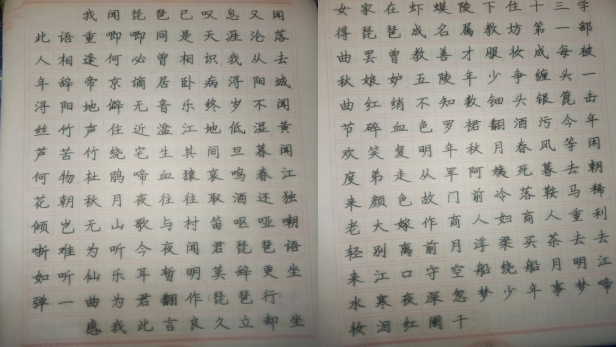 我闻琵琶已叹息又闻
此语重唧唧同是天涯沦落
人相逢何必曾相识我从去
年辞帝京谪居卧病浔阳城
浔阳地僻无音乐终岁不闻
丝竹声住近湓江地低湿黄
芦苦竹绕宅生其间旦暮闻
何物杜鹃啼血猿哀鸣春江
花朝秋月夜往往取酒还独
倾岂无山歌与村笛呕哑嘲
哳难为听今夜闻君琵琶语
如听仙乐耳暂明莫辞更坐
弹一曲为君翻作琵琶行
感我此言良久立却坐
女家在虾蟆陵下住十三学
得琵琶成名属教坊第一部
曲罢曾教善才服妆成每被
秋娘妒五陵年少争缠头一
曲红绡不知数钿头银篦击
节碎血色罗裙翻酒污今年
欢笑复明年秋月春风等闲
度弟走从军阿姨死暮去朝
来颜色故门前冷落鞍马稀
老大嫁作商人妇商人重利
轻别离前月浮梁买茶去去
来江口守空船绕船月明江
水寒夜深忽梦少年事梦啼
妆泪红阑干